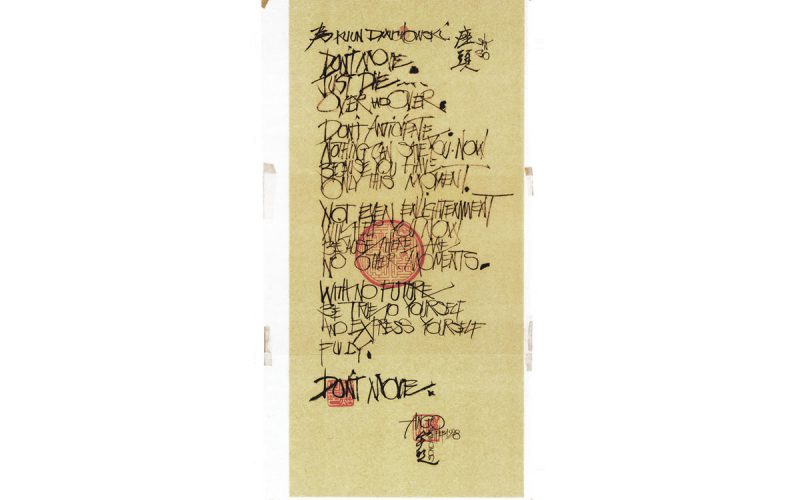 DON'T MOVE.
JUST DIE
OVER AND OVER.
DON'T ANTICIPATE.
NOTHING CAN SAVE YOU NOW
BECAUSE YOU HAVE
ONLY THIS MOMENT.
NOT EVEN ENLIGHTENMENT
WILL HELP YOU NOW
BECAUSE THERE ARE
NO OTHER MOMENTS.
WITH NO FUTURE
BE TRUE TO YOURSELF
AND EXPRESS YOURSELF
FULLY.
DON'T MOVE.
ANGO